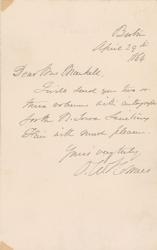 Boston
April 29th
1864
Dear Mrs.
I will send you two or
three volumes with autographs
for the Sanitary
Fair with much pleasure.
Yours very truly,
O. W. Holmes